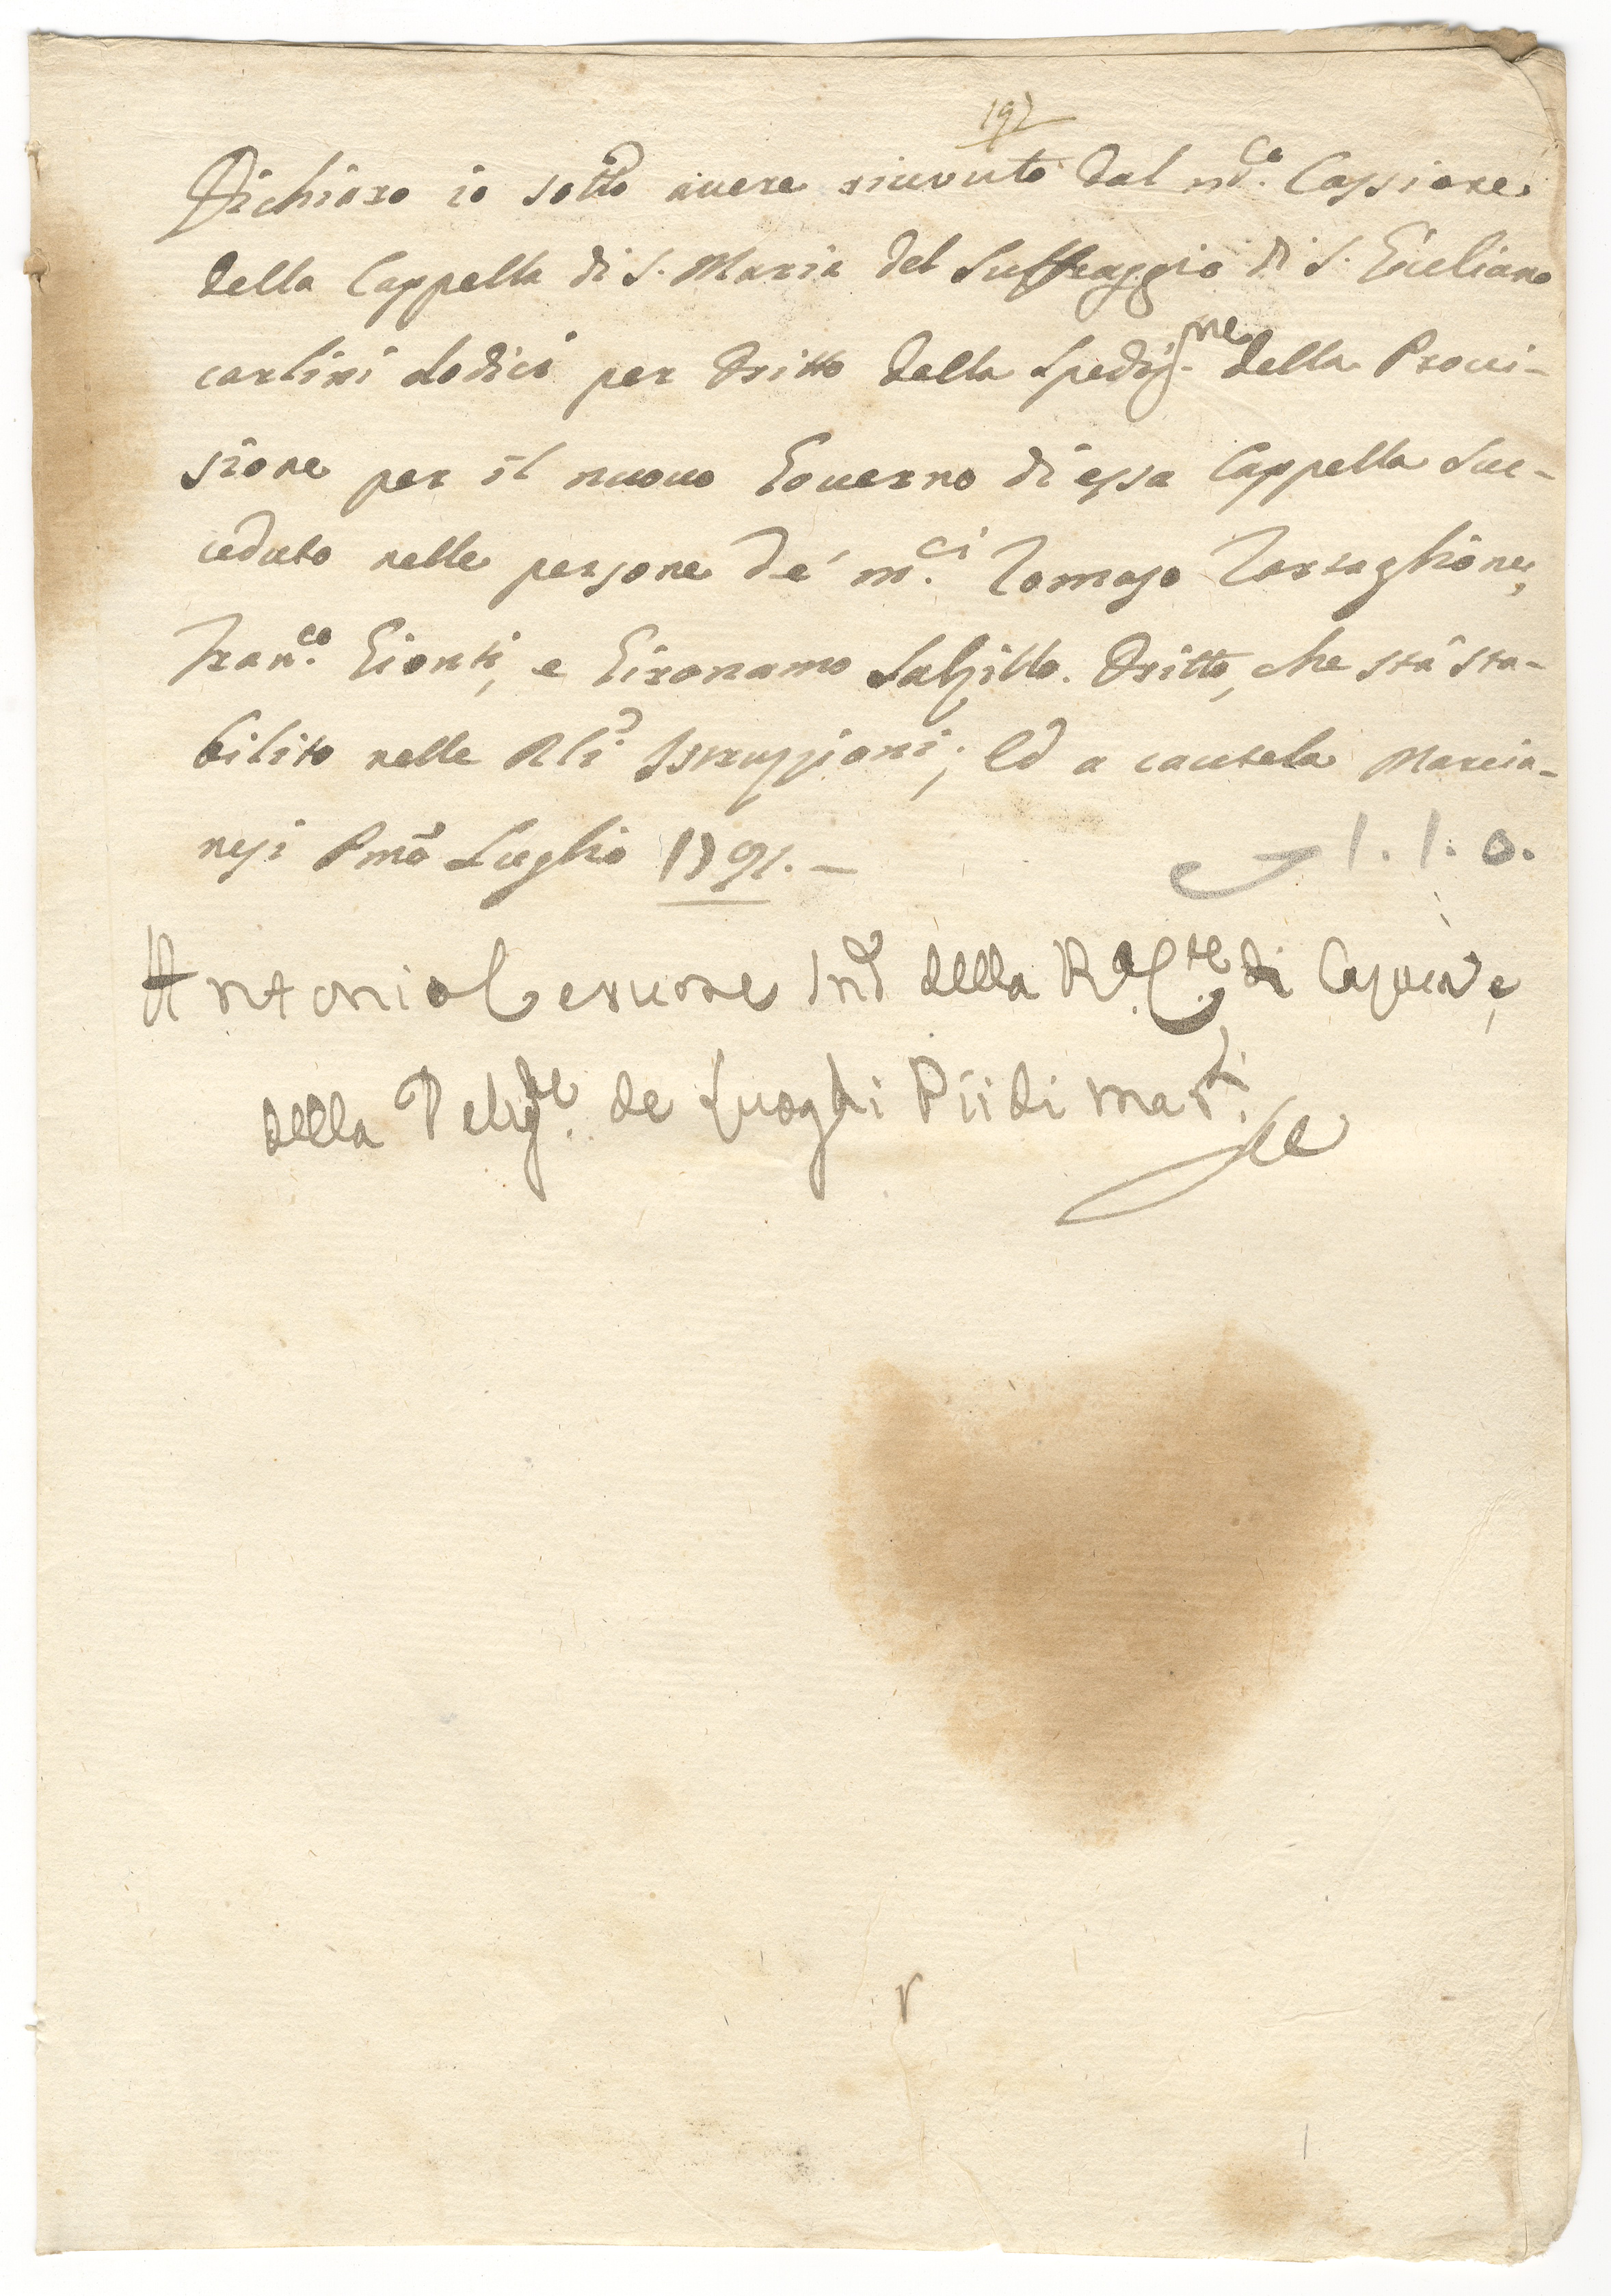 192
Dichiaro io sott.o avere ricevuto dal m.co Cassiere
della Cappella di S. Maria del Suffraggio di S. Giuliano
carlini dodici per dritto della Spediz.ne della Provi-
sione per il nuovo Governo di essa Cappella suc-
ceduto nelle persone de' m.ci Tomaso Tartaglione,
Fran.co Gionti, e Gironamo Salzillo. Dritto, che stà sta-
bilito nelle Rli Istruzzioni; Ed a cautela Marcia-
nesi Pmo Luglio 1791.—
1. 1. 0.
Antonio della R.l C.te di Capua, e
della Deleg.ne de Luoghi Pii di